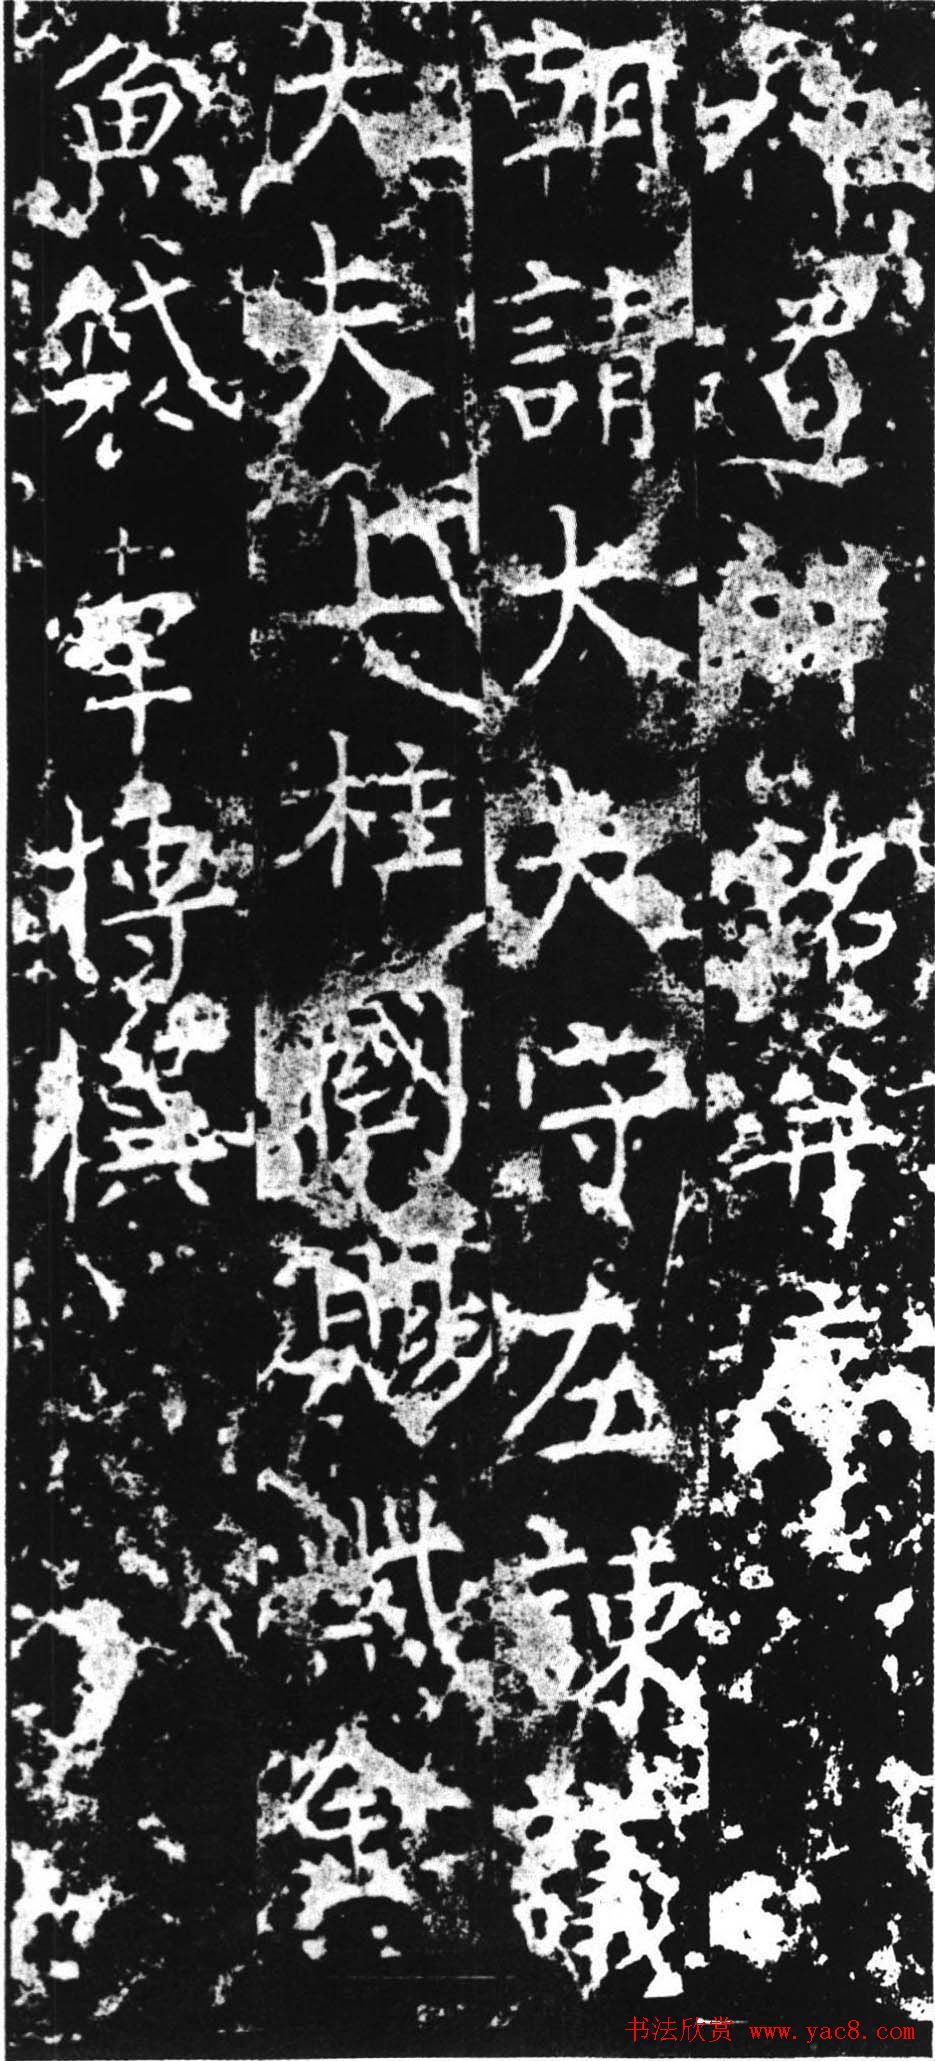 神道碑銘并序
朝請大夫守左諫議
大夫上柱國賜紫金
魚袋韋博撰
书法欣赏 www.yac8.com